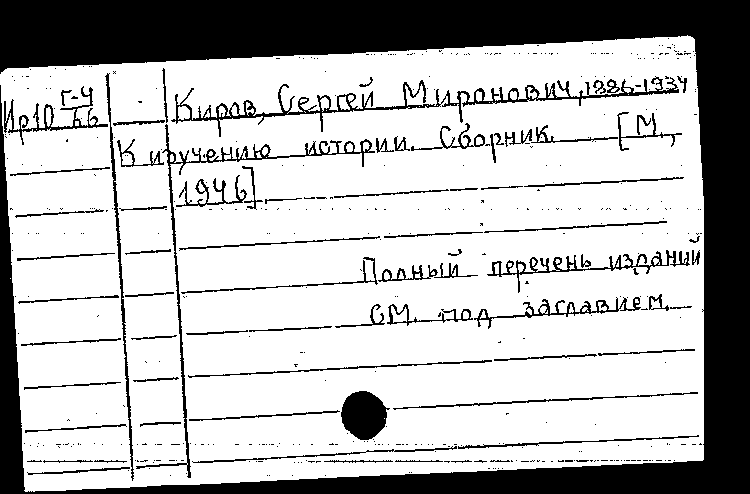 Ир10 Г-4/66
Киров, Сергей Миронович, 1886-1934
К изучению истории. Сборник. [М.,
1946].
Полный перечень изданий
см. под заглавием.